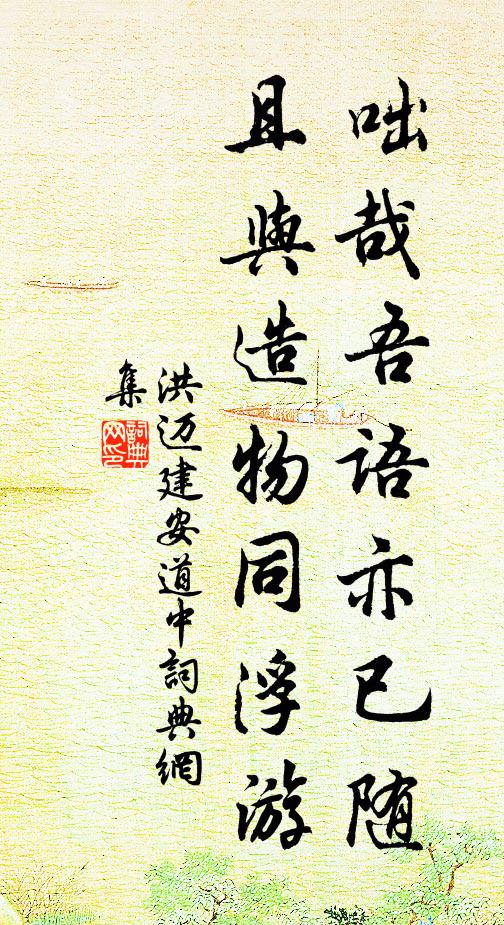 咄哉吾语亦已随
且與造物同浮游
洪迈建安道中詞典網
集
詞典
网印